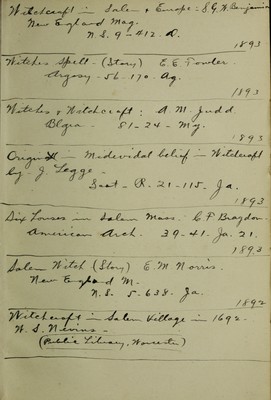 Witchcraft in Salem & Europe. S.G.W. Benjamin
New England Mag.
N.S. 9-412. D.
1893
Witches Spell - (Story) E.E. Fowler.
Argosy - 56-170. Ag.
1893
Witches & Witchcraft: A. M. Judd.
81-24- My.
1893
Origin in Midevidal belief in Witchcraft
by J. Legge -
Scot - R. 21-115. Ja.
1893
Six houses in Salem Mass. C F Bragdon.
American Arch. 39-41. Ja. 21.
1893
Salem Witch (Story) E. M Norris.
New England M-
N.S. 5-638. Ja.
1892
Witchcraft in Salem Village in 1692.
W. S. Nevins -
(Public Library, Worcester)